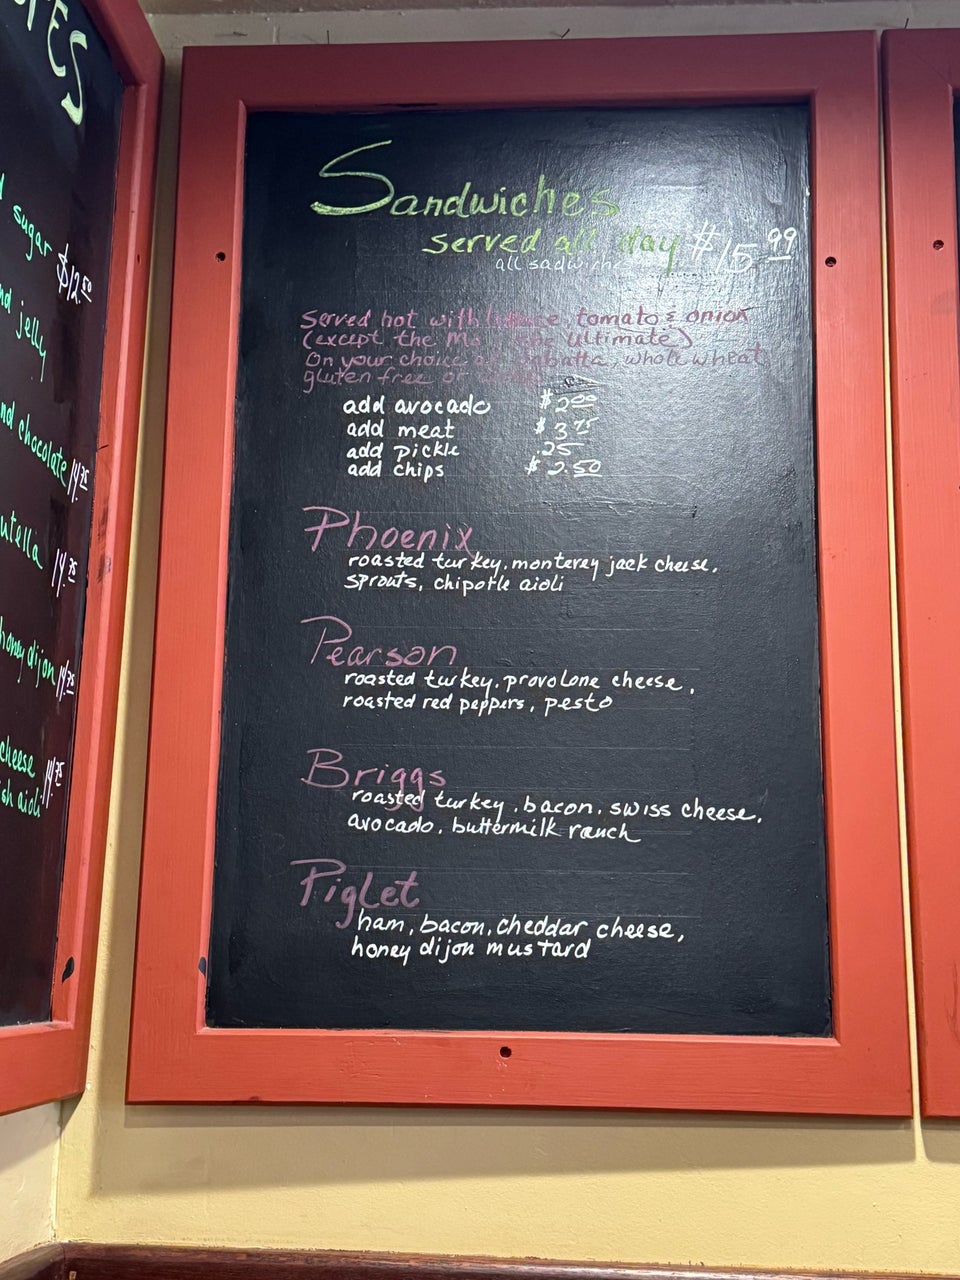 d sugar $12.50
nd jelly
nd chocolate 14.75
utella 14.75
honey dijon 14.75
cheese 14.75
sh aioli
Sandwiches
served all day $15.99
all sadwiche
Served hot with tomato & onion
(except the the Ultimate)
On your choice whole wheat
gluten free or
add avocado $2.00
add meat $3.75
add pickle .25
add chips $2.50
Phoenix
roasted turkey, monterey jack cheese,
sprouts, chipotle aioli
Pearson
roasted turkey, provolone cheese,
roasted red peppers, pesto
Briggs
roasted turkey, bacon, swiss cheese,
avocado, buttermilk ranch
Piglet
ham, bacon, cheddar cheese,
honey dijon mustard